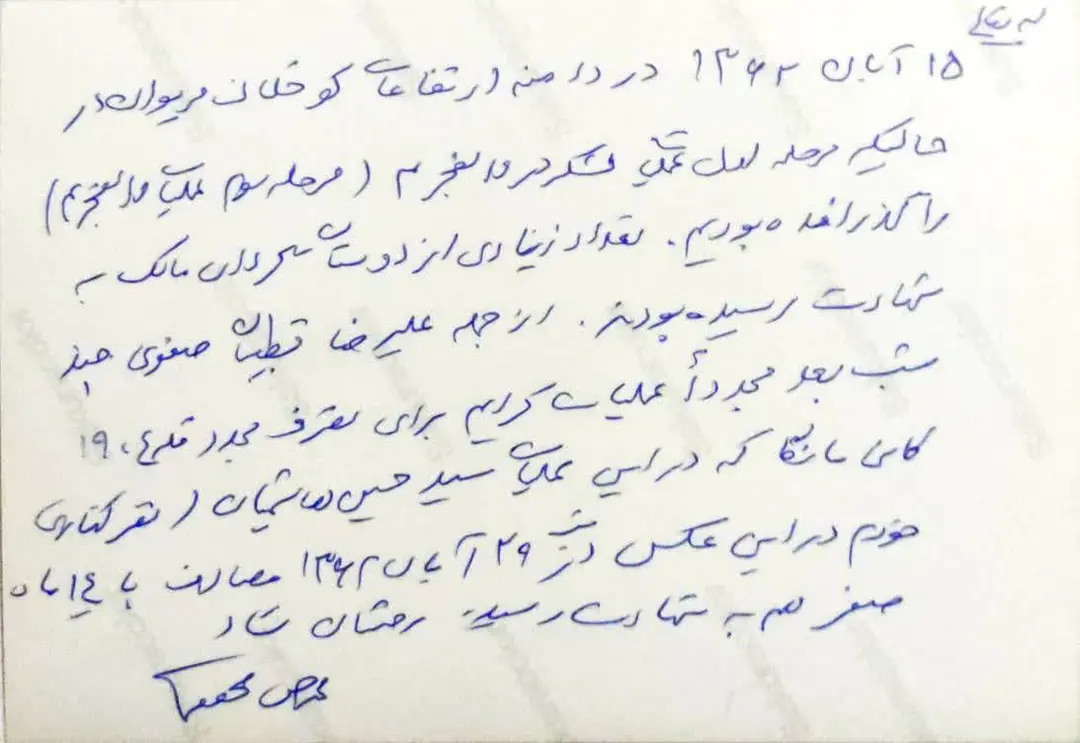 به تعالی
۱۵ آبان ۱۳۶۲ در دامنه ارتفاعات کوخلان مریوان در
حالیکه مرحله اول عملیات لشکر در والفجر ۴ (مرحله سوم عملیات والفجر ۴)
را گذرانده بودیم. تعداد زیادی از دوستان گردان مالک به
شهادت رسیده بودند. از جمله علیرضا قبطیان صفوی چند
شب بعد مجدداً عملیات کردیم برای تصرف مجدد قله ۱۹۰۴
کانی مانگا که در این عملیات سید حسین هاشمیان (نفر کناری
خودم در این عکس در شب ۲۹ آبان ۱۳۶۲ مصادف با ۱۴ ماه
صفر هم به شهادت رسید. روحشان شاد